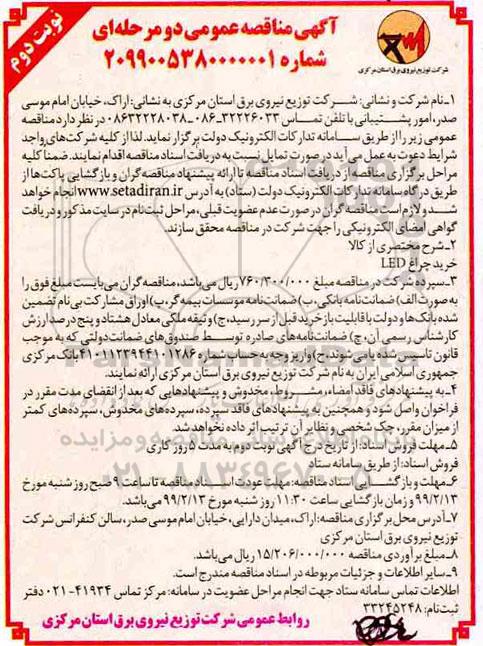 نوبت دوم
آگهی مناقصه عمومی دو مرحله‌ای
شماره ۲۰۹۹۰۰۵۳۸۰۰۰۰۰۰۱
شرکت توزیع نیروی برق استان مرکزی
۱ـ نام شرکت و نشانی: شرکت توزیع نیروی برق استان مرکزی به نشانی: اراک، خیابان امام موسی
صدر، امور پشتیبانی با تلفن تماس ۳۲۲۲۶۰۳۳ـ۰۸۶ـ ۰۸۶۳۲۲۲۸۰۳۸ در نظر دارد مناقصه
عمومی زیر را از طریق سامانه تدارکات الکترونیک دولت برگزار نماید. لذا از کلیه شرکت‌های واجد
شرایط دعوت به عمل می‌آید در صورت تمایل نسبت به دریافت اسناد مناقصه اقدام نمایند. ضمنا کلیه
مراحل برگزاری مناقصه از دریافت اسناد مناقصه تا ارائه پیشنهاد مناقصه گران و بازگشایی پاکت‌ها از
طریق درگاه سامانه تدارکات الکترونیک دولت (ستاد) به آدرس www.setadiran.ir انجام خواهد
شد و لازم است مناقصه گران در صورت عدم عضویت قبلی، مراحل ثبت نام در سایت مذکور و دریافت
گواهی امضای الکترونیکی را جهت شرکت در مناقصه محقق سازند.
۲ـ شرح مختصری از کالا
خرید چراغ LED
۳ـ سپرده شرکت در مناقصه مبلغ ۷۶۰/۳۰۰/۰۰۰ ریال می‌باشد، مناقصه گران می‌بایست مبلغ فوق را
به صورت الف) ضمانت نامه بانکی، ب) ضمانت نامه موسسات بیمه گر، پ) اوراق مشارکت بی نام تضمین
شده بانک‌ها و دولت با قابلیت باز خرید قبل از سررسید، ج) وثیقه ملکی معادل هشتاد و پنج درصد ارزش
کارشناس رسمی آن، چ) ضمانت نامه‌های صادره توسط صندوق‌های ضمانت دولتی که به موجب
قانون تاسیس شده یا می شوند، ح) واریز وجه به حساب شماره ۴۱۰۱۱۲۳۹۴۴۱۰۱۲۸۶ بانک مرکزی
جمهوری اسلامی ایران به نام شرکت توزیع نیروی برق استان مرکزی ارائه نمایند.
۴ـ به پیشنهادهای فاقد امضاء، مشروط، مخدوش و پیشنهادهایی که بعد از انقضای مدت مقرر در
فراخوان واصل شود و همچنین به پیشنهادهای فاقد سپرده، سپرده‌های مخدوش، سپرده‌های کمتر
از میزان مقرر، چک شخصی و نظایر آن ترتیب اثر داده نخواهد شد.
۵ـ مهلت فروش اسناد: از تاریخ درج آگهی نوبت دوم به مدت ۵ روز کاری
فروش اسناد: از طریق سامانه ستاد
۶ـ مهلت و بازگشایی اسناد مناقصه: مهلت عودت اسناد مناقصه تا ساعت ۹ صبح روز شنبه مورخ
۹۹/۲/۱۳ و زمان بازگشایی ساعت ۱۱:۳۰ روز شنبه مورخ ۹۹/۲/۱۳ می‌باشد.
۷ـ آدرس محل برگزاری مناقصه: اراک، میدان دارایی، خیابان امام موسی صدر، سالن کنفرانس شرکت
توزیع نیروی برق استان مرکزی
۸ـ مبلغ برآوردی مناقصه ۱۵/۲۰۶/۰۰۰/۰۰۰ ریال می‌باشد.
۹ـ سایر اطلاعات و جزئیات مربوطه در اسناد مناقصه مندرج است.
اطلاعات تماس سامانه ستاد جهت انجام مراحل عضویت در سامانه: مرکز تماس ۴۱۹۳۴ـ۰۲۱ دفتر
ثبت نام: ۳۳۲۴۵۲۴۸
روابط عمومی شرکت توزیع نیروی برق استان مرکزی